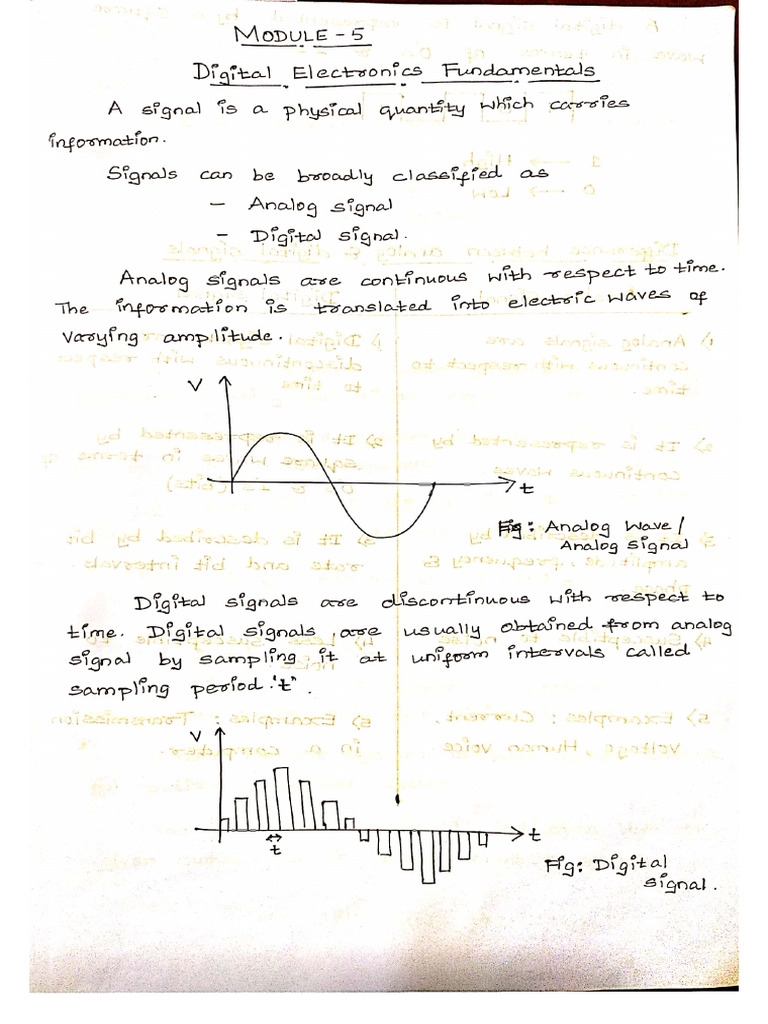 MODULE - 5
Digital Electronics Fundamentals
A signal is a physical quantity which carries
information.
Signals can be broadly classified as
- Analog signal
- Digital signal.
Analog signals are continuous with respect to time.
The information is translated into electric waves of
varying amplitude.
V
t
Fig: Analog Wave/
Analog signal
Digital signals are discontinuous with respect to
time. Digital signals are usually obtained from analog
signal by sampling it at uniform intervals called
sampling period "t".
V
t
t
Fig: Digital
signal.